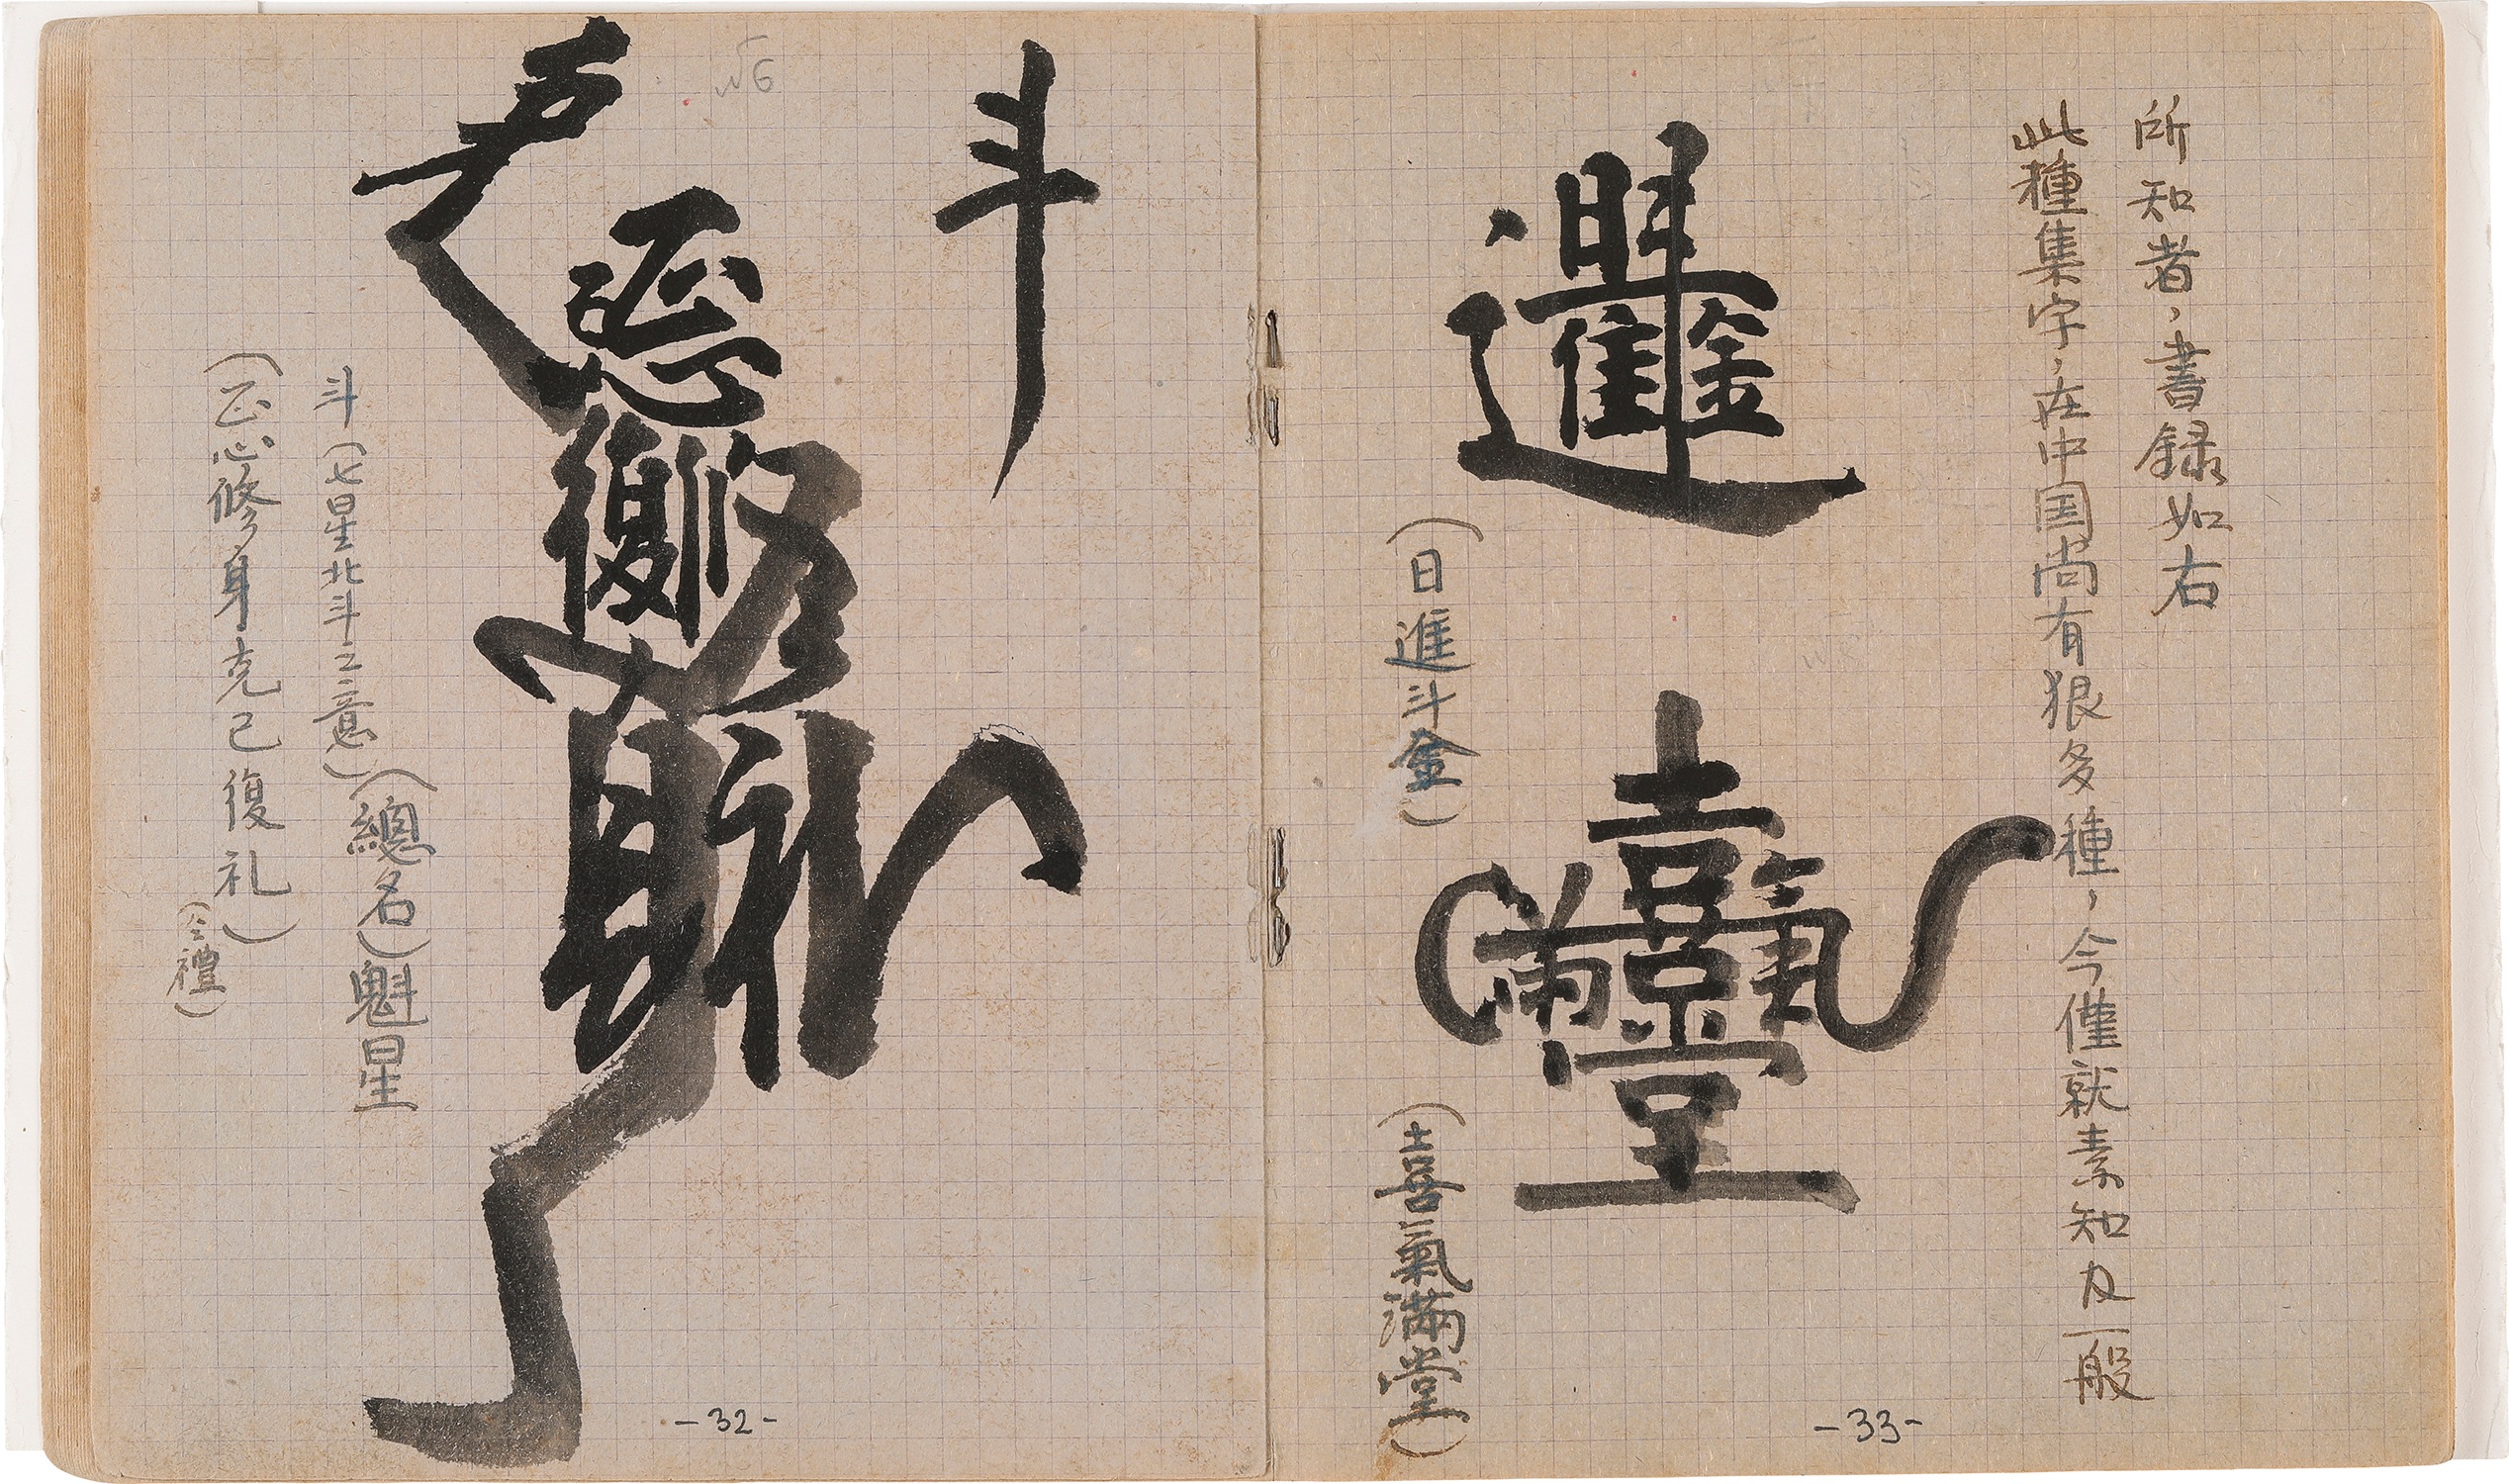 斗
(總名)魁星
斗(七星北斗之意)
(正心修身克己復礼)
(仝禮)
-32-
(日進斗金)
(喜氣滿堂)
此種集字，在中国尚有狠多種，今僅就素知及一般
所知者，書録如右
-33-